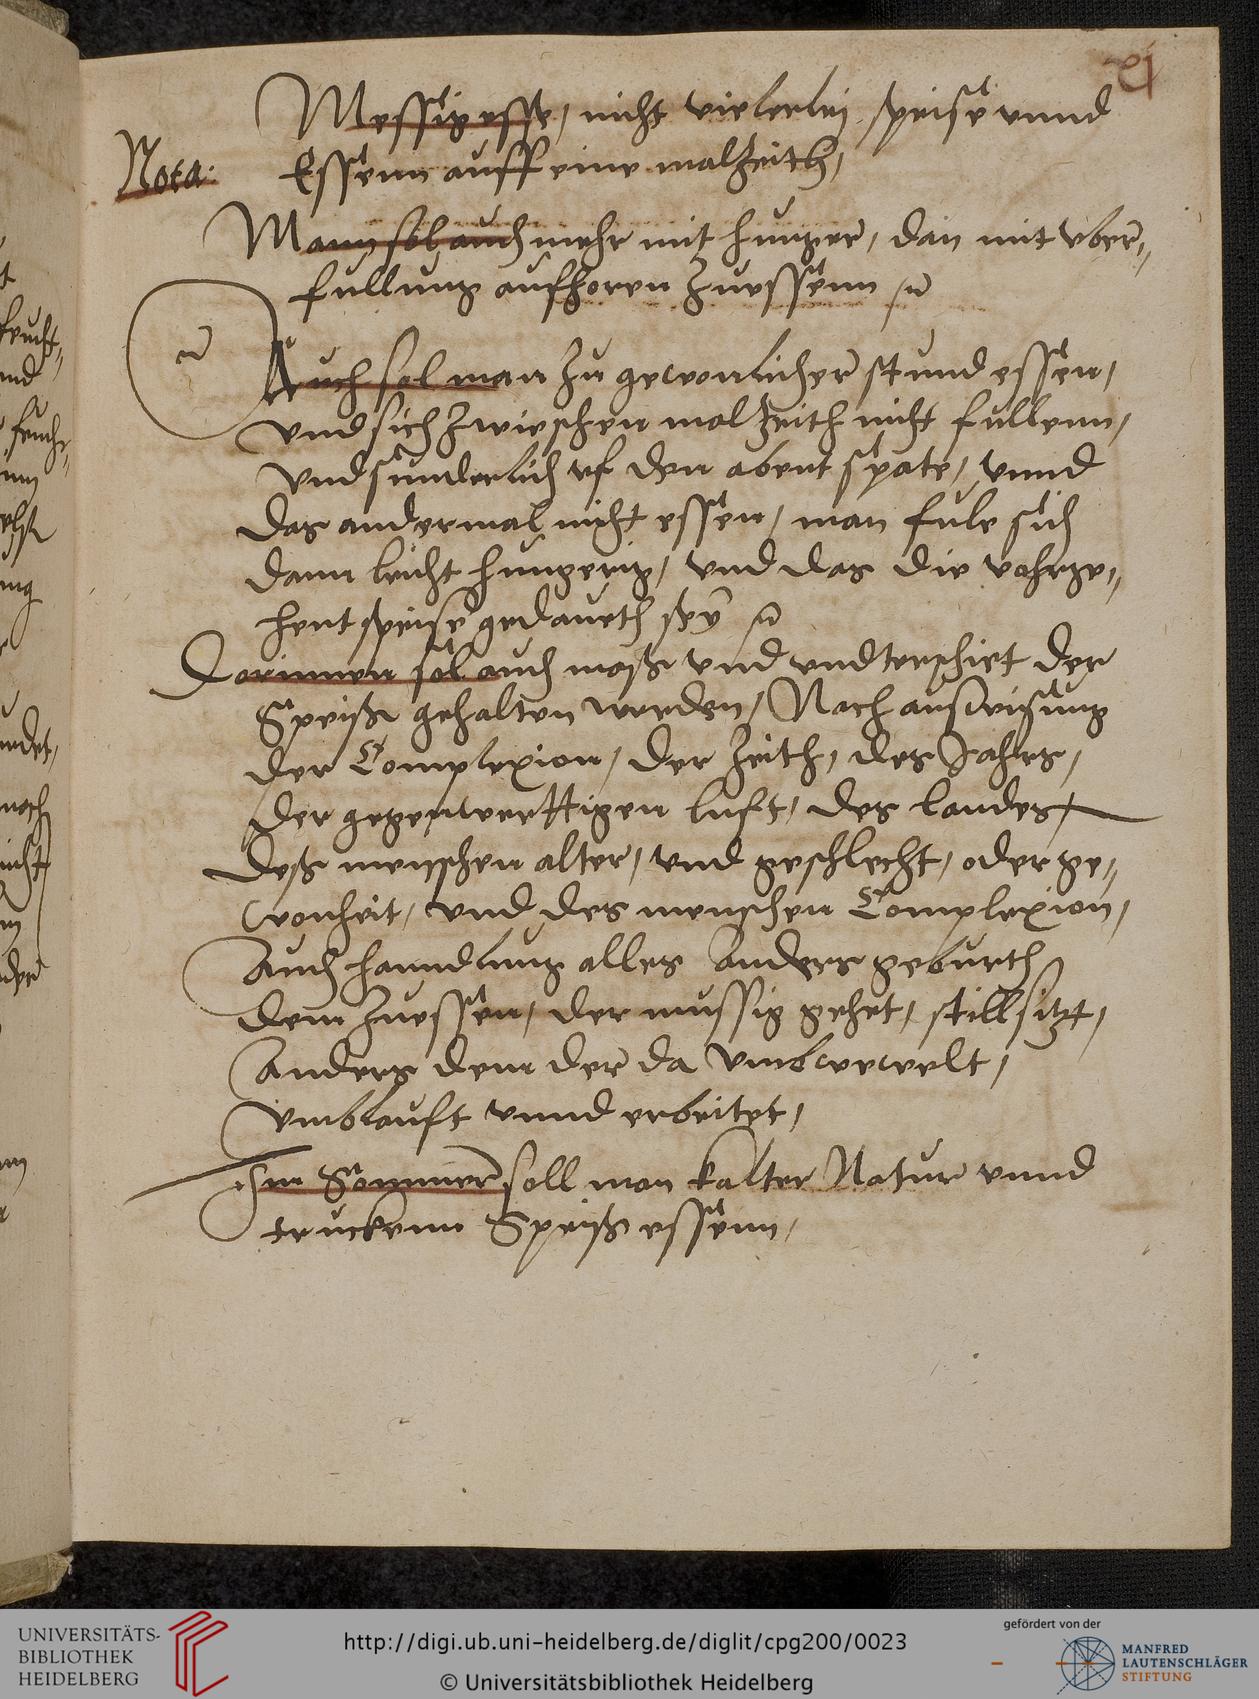 12
Messig esse, nicht vielerlei speise vnnd
Nota: Essenn auff eine malzeith,
Mann sol auch mehr mit hunger, dan mit vber„
fullung aufhoren zuessenn
Auch sol man zu gewonlicher stund essen,
vnd sich zwieschen malzeith nicht fullenn,
vnd sunderlich vf den abent spate, vnnd
das andermal nicht essen, man fule sich
dann leicht hungerig, vnd das die vohrge„
hent speise gedaueth sey
Dorinnen sol auch maß vnd vndterschiet der
Speiß gehalten werden, Nach ausweisung
der Complexion, der zeith, des Jahrs,
der gegenwerttigen luft, des landes,
deß menschen alter, vnd geschlecht, oder ge„
wonheit, vnd des menschen Complexion,
Auch hanndlung alles anders geburth
dem zuessen, der mussig gehet, still sitzt,
Anders dem der da vmbwewelt,
vmblauft vnnd erbeitet,
Im Sommer soll man kalter Natur vnnd
truckenn Speiß essenn,
UNIVERSITÄTS-
BIBLIOTHEK
HEIDELBERG
http://digi.ub.uni-heidelberg.de/diglit/cpg200/0023
© Universitätsbibliothek Heidelberg
gefördert von der
MANFRED
LAUTENSCHLÄGER
STIFTUNG